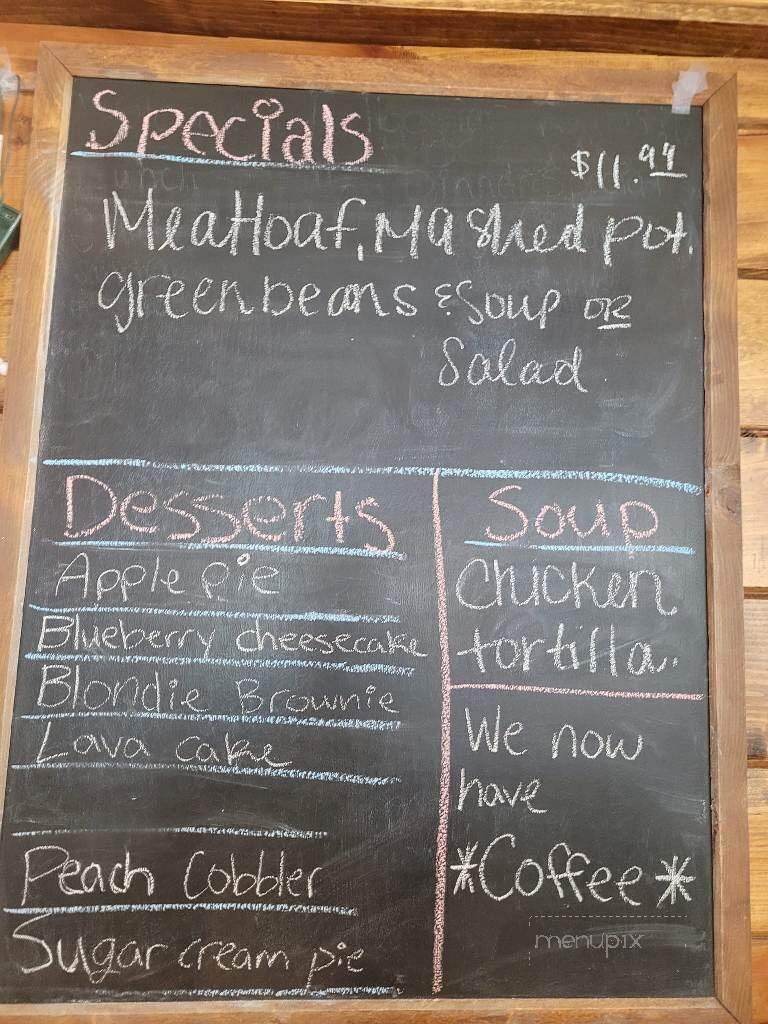 Specials
$11.99
Meatloaf, Mashed pot.
greenbeans & Soup OR
Salad
Desserts
Apple pie
Blueberry cheesecake
Blondie Brownie
Lava cake
Peach Cobbler
Sugar cream pie
Soup
Chicken
tortilla.
We now
have
*Coffee*
menupix